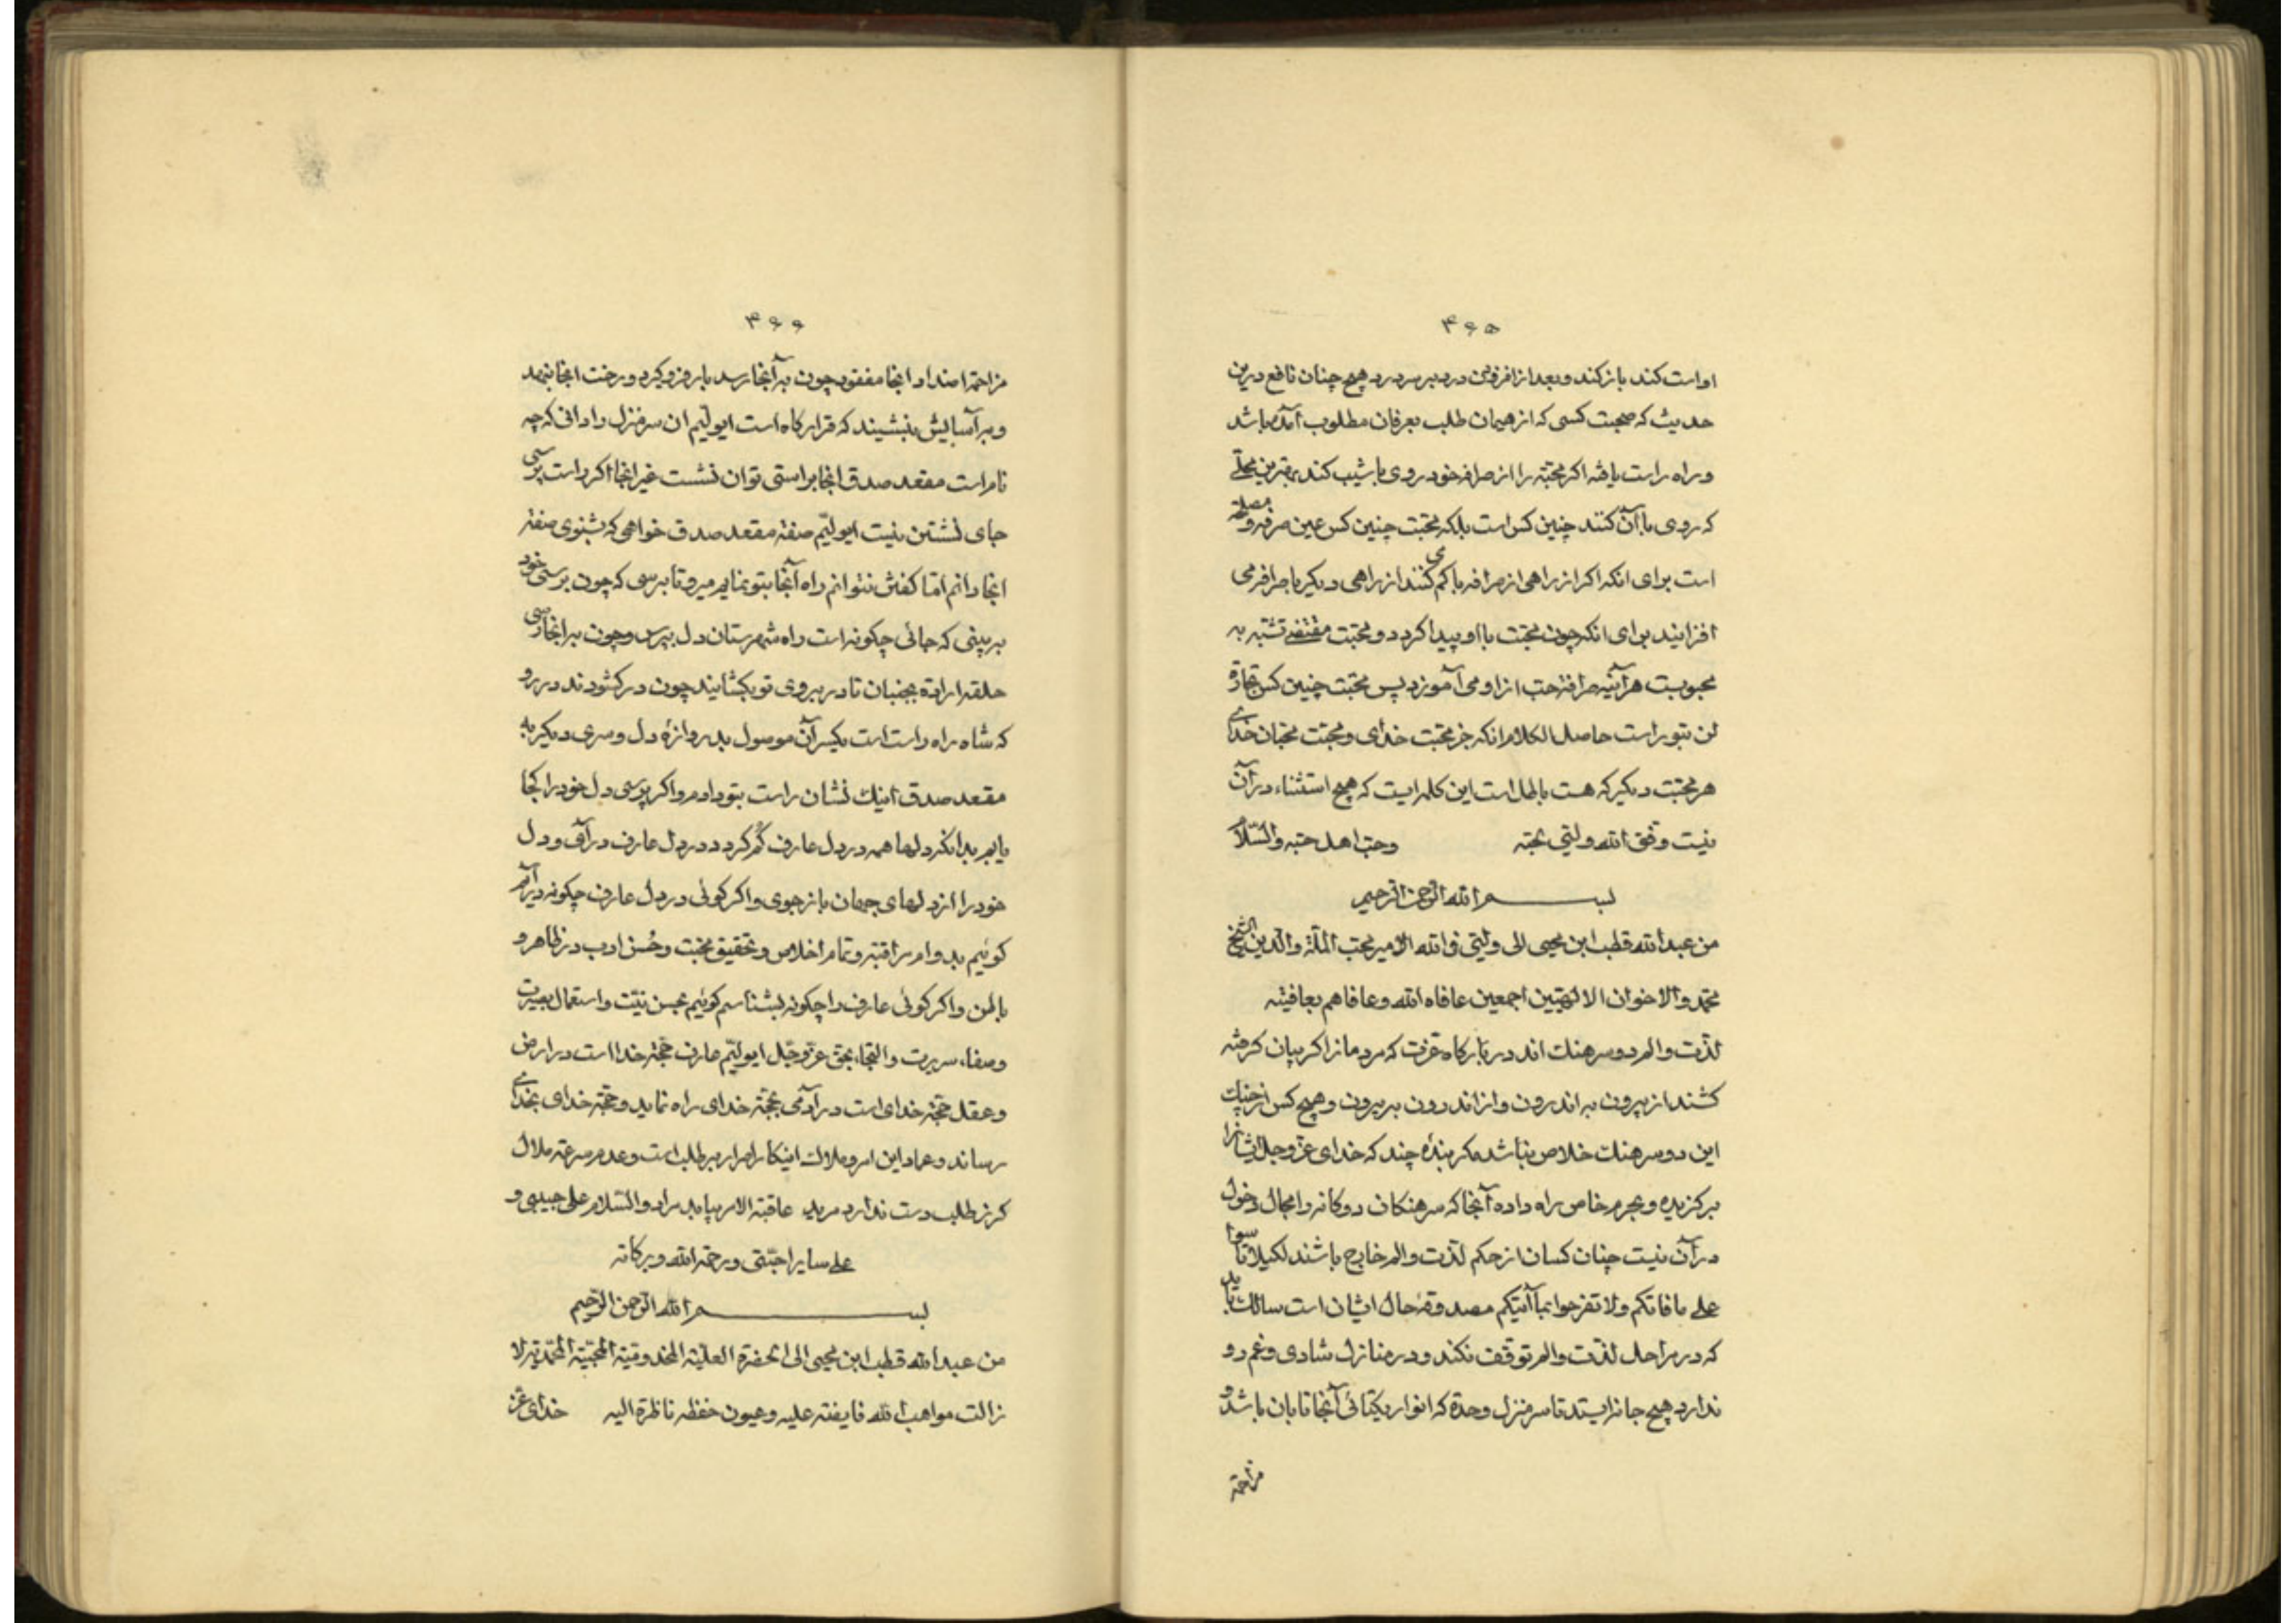 ۴۶۵
او است کند باز کند و بعد از افزونی درد بر سر درد هیچ چنان نافع درین
حدیث که صحبت کسی که از همان طلب بعرفان مطلوب آمده باشد
و راه راست یافته اکر محبته را از صرافه خود روی با شیب کند بهترین محلے
که روی با آن کنند چنین کس است بلکه محبت چنین کس عین صرفه و مصلحة
است برای انکه اکر از راهی از صرافه با کمی کنند از راهی دیکر با صرافه می
افزایند برای انکه چون محبت با او پیدا کردد و محبت مقتضے تشبه به
محبوبست هر آینه صرافة حب از او می آموزد پس محبت چنین کس تجارة
لن تبور است حاصل الکلام انکه جز محبت خدای و محبت محبان خدای
هر محبت دیکر که هست باطل است این کلمه ایست که هیچ استثناء در آن
نیست وفق الله ولیّی بحبّه وحبّ اهل حبّه والسّلام
بسم الله الرّحمن الرّحیم
من عبد الله قطب ابن یحیی الی ولیّی فی الله الامیر محب الملّة والدّین الشیخ
محمّد والاخوان الالهیّین اجمعین عافاه الله وعافاهم بعافیته
لذّت و الم دو سرهنك اند در بارکاه عزّت که مردمانرا کریبان کرفته
کشند از بیرون به اندرون و از اندرون به بیرون و هیچ کس از چنك
این دو سرهنك خلاص نباشد مکر بندهٔ چند که خدای عزّ و جلّ ایشانرا
برکزیده و بحرم خاص راه داده آنجا که سرهنکان دوکانه را مجال دخول
در آن نیست چنان کسان از حکم لذّت و الم خارج باشند لکیلا تاسوا
علی ما فاتکم ولا تفرحوا بما آتیکم مصدوقه حال ایشان است سالك باید
که در مراحل لذّت و الم توقّف نکند و در منازل شادی و غم رو
ندارد هیچ جا نه ایستد تا سر منزل وحدة که انوار یکتائی آنجا تابان باشد و
مزاحمة
۴۶۶
مزاحمة اضداد انجا مفقود چون به آنجا رسد بار فرو کیرد و رخت انجا بنهد
و بر آسایش بنشیند که قرارکاه است ایولیّم ان سر منزل را دانی که چه
نام است مقعد صدق انجا براستی توان نشست غیر انجا اکر راست پرسی
جای نشستن نیست ایولیّم صفة مقعد صدق خواهی که بشنوی صفة
انجا دانم امّا کفتن نتوانم راه آنجا بتو نمایم میرو تا برسی که چون برسی خود
به بینی که جائی چکونه است راه شهرستان دل بپرس و چون به انجا رسی
حلقه ارادة بجنبان تا در بروی تو بکشایند چون در کشودند در رو
که شاه راه راست است یکسر آن موصول بدروازهٔ دل و سری دیکر به
مقعد صدق اینك نشان راست بتو دادم و اکر پرسی دل خود را کجا
یابم بدانکه دلها همه در دل عارف کُم کردد در دل عارف در آی و دل
خود را از دلهای جهان باز جوی و اکر کوئی در دل عارف چکونه در آیم
کوئیم بدوام مراقبة و تمام اخلاص و تحقیق محبّت و حُسن ادب در ظاهر و
باطن و اکر کوئی عارف را چکونه بشناسم کوئیم بحسن نیّت و استعمال بصیرت
و صفاء سریرت و التجاء بحق عزّ و جلّ ایولیّم عارف حجّة خدا است در ارض
و عقل حجّة خدای است در آدمی بحجّة خدای راه نماید و حجّة خدای بخدای
رساند و عماد این امر و ملاك اینکار اصرار بر طلب است و عدم سرعة ملال
کر ز طلب دست ندارد مرید عاقبة الامر بیابد مراد والسّلام علی حبیبی و
علی سایر احبّتی ورحمة الله وبرکاته
بسم الله الرّحمن الرّحیم
من عبد الله قطب ابن یحیی الی الحضرة العلیّة المخدومیّة المحبیّة المحمّدیّة لا
زالت مواهب الله فایضة علیه وعیون حفظه ناظرة الیه خدای عزّ